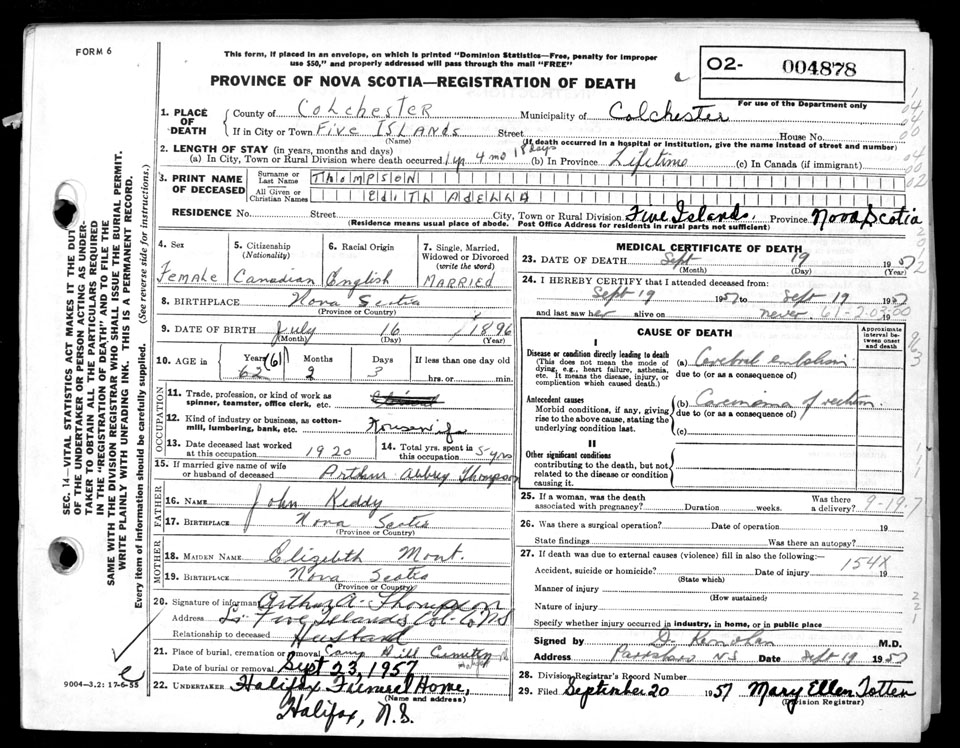 FORM 6
This form, if placed in an envelope, on which is printed "Dominion Statistics—Free, penalty for improper
use $50," and properly addressed will pass through the mail "FREE"
PROVINCE OF NOVA SCOTIA—REGISTRATION OF DEATH
O2- 004878
For use of the Department only
1. PLACE OF DEATH County of Colchester Municipality of Colchester
If in City or Town Five Islands (Name) Street House No.
(If death occurred in a hospital or institution, give the name instead of street and number)
2. LENGTH OF STAY (in years, months and days)
(a) In City, Town or Rural Division where death occurred 1 yr 4 mo 18 days (b) In Province Lifetime (c) In Canada (if immigrant)
3. PRINT NAME OF DECEASED Surname or Last Name Thompson
All Given or Christian Names Edith Adella
RESIDENCE No. Street City, Town or Rural Division Five Islands. Province Nova Scotia
(Residence means usual place of abode. Post Office Address for residents in rural parts not sufficient)
4. Sex Female
5. Citizenship (Nationality) Canadian
6. Racial Origin English
7. Single, Married, Widowed or Divorced (write the word) Married
8. BIRTHPLACE Nova Scotia
(Province or Country)
9. DATE OF BIRTH July 16 1896
(Month) (Day) (Year)
10. AGE in Years 62 (61) Months 2 Days 3 If less than one day old
hrs. or min.
OCCUPATION
11. Trade, profession, or kind of work as
spinner, teamster, office clerk, etc.
12. Kind of industry or business, as cotton-
mill, lumbering, bank, etc. Housewife
13. Date deceased last worked
at this occupation 1920
14. Total yrs. spent in
this occupation 5 yrs
15. If married give name of wife
or husband of deceased Arthur Abbey Thompson
FATHER
16. NAME John Kiddy
17. BIRTHPLACE Nova Scotia
(Province or Country)
MOTHER
18. MAIDEN NAME Elizibeth Mont.
19. BIRTHPLACE Nova Scotia
(Province or Country)
20. Signature of informant Arthur A. Thompson
Address Five Islands Col. Co NS
Relationship to deceased Husband
21. Place of burial, cremation or removal Camp Hill Cemetery
Date of burial or removal Sept 23, 1957
22. UNDERTAKER Halifax Funeral Home,
(Name and address)
Halifax, N.S.
MEDICAL CERTIFICATE OF DEATH
23. DATE OF DEATH Sept 19 1957
(Month) (Day) (Year)
24. I HEREBY CERTIFY that I attended deceased from:
Sept 19 1957 to Sept 19 1957
and last saw her alive on never. 61-2-03-00 19
CAUSE OF DEATH
Approximate interval between onset and death
I
Disease or condition directly leading to death
(This does not mean the mode of
dying, e.g., heart failure, asthenia,
etc. It means the disease, injury, or
complication which caused death.)
(a) Cerebral embolism
due to (or as a consequence of)
Antecedent causes
Morbid conditions, if any, giving
rise to the above cause, stating the
underlying condition last.
(b) Carcinoma of rectum.
due to (or as a consequence of)
(c)
II
Other significant conditions
contributing to the death, but not
related to the disease or condition
causing it.
25. If a woman, was the death
associated with pregnancy? Duration weeks. Was there
a delivery? 9-19-7
26. Was there a surgical operation? Date of operation 19
State findings Was there an autopsy?
27. If death was due to external causes (violence) fill in also the following:—
154X
Accident, suicide or homicide? Date of injury 19
(State which)
Manner of injury
(How sustained)
Nature of injury
Specify whether injury occurred in industry, in home, or in public place
Signed by D. Kernohan M.D.
Address Parrsboro NS Date Sept 19 1957
28. Division Registrar's Record Number
29. Filed September 20 1957 Mary Ellen Totten
(Division Registrar)
SEC. 14—VITAL STATISTICS ACT MAKES IT THE DUTY
OF THE UNDERTAKER OR PERSON ACTING AS UNDER-
TAKER TO OBTAIN ALL THE PARTICULARS REQUIRED
IN THE "REGISTRATION OF DEATH" AND TO FILE THE
SAME WITH THE DIVISION REGISTRAR WHO SHALL ISSUE THE BURIAL PERMIT.
WRITE PLAINLY WITH UNFADING INK. THIS IS A PERMANENT RECORD.
Every item of information should be carefully supplied. (See reverse side for instructions.)
9004-3.2: 17-6-55